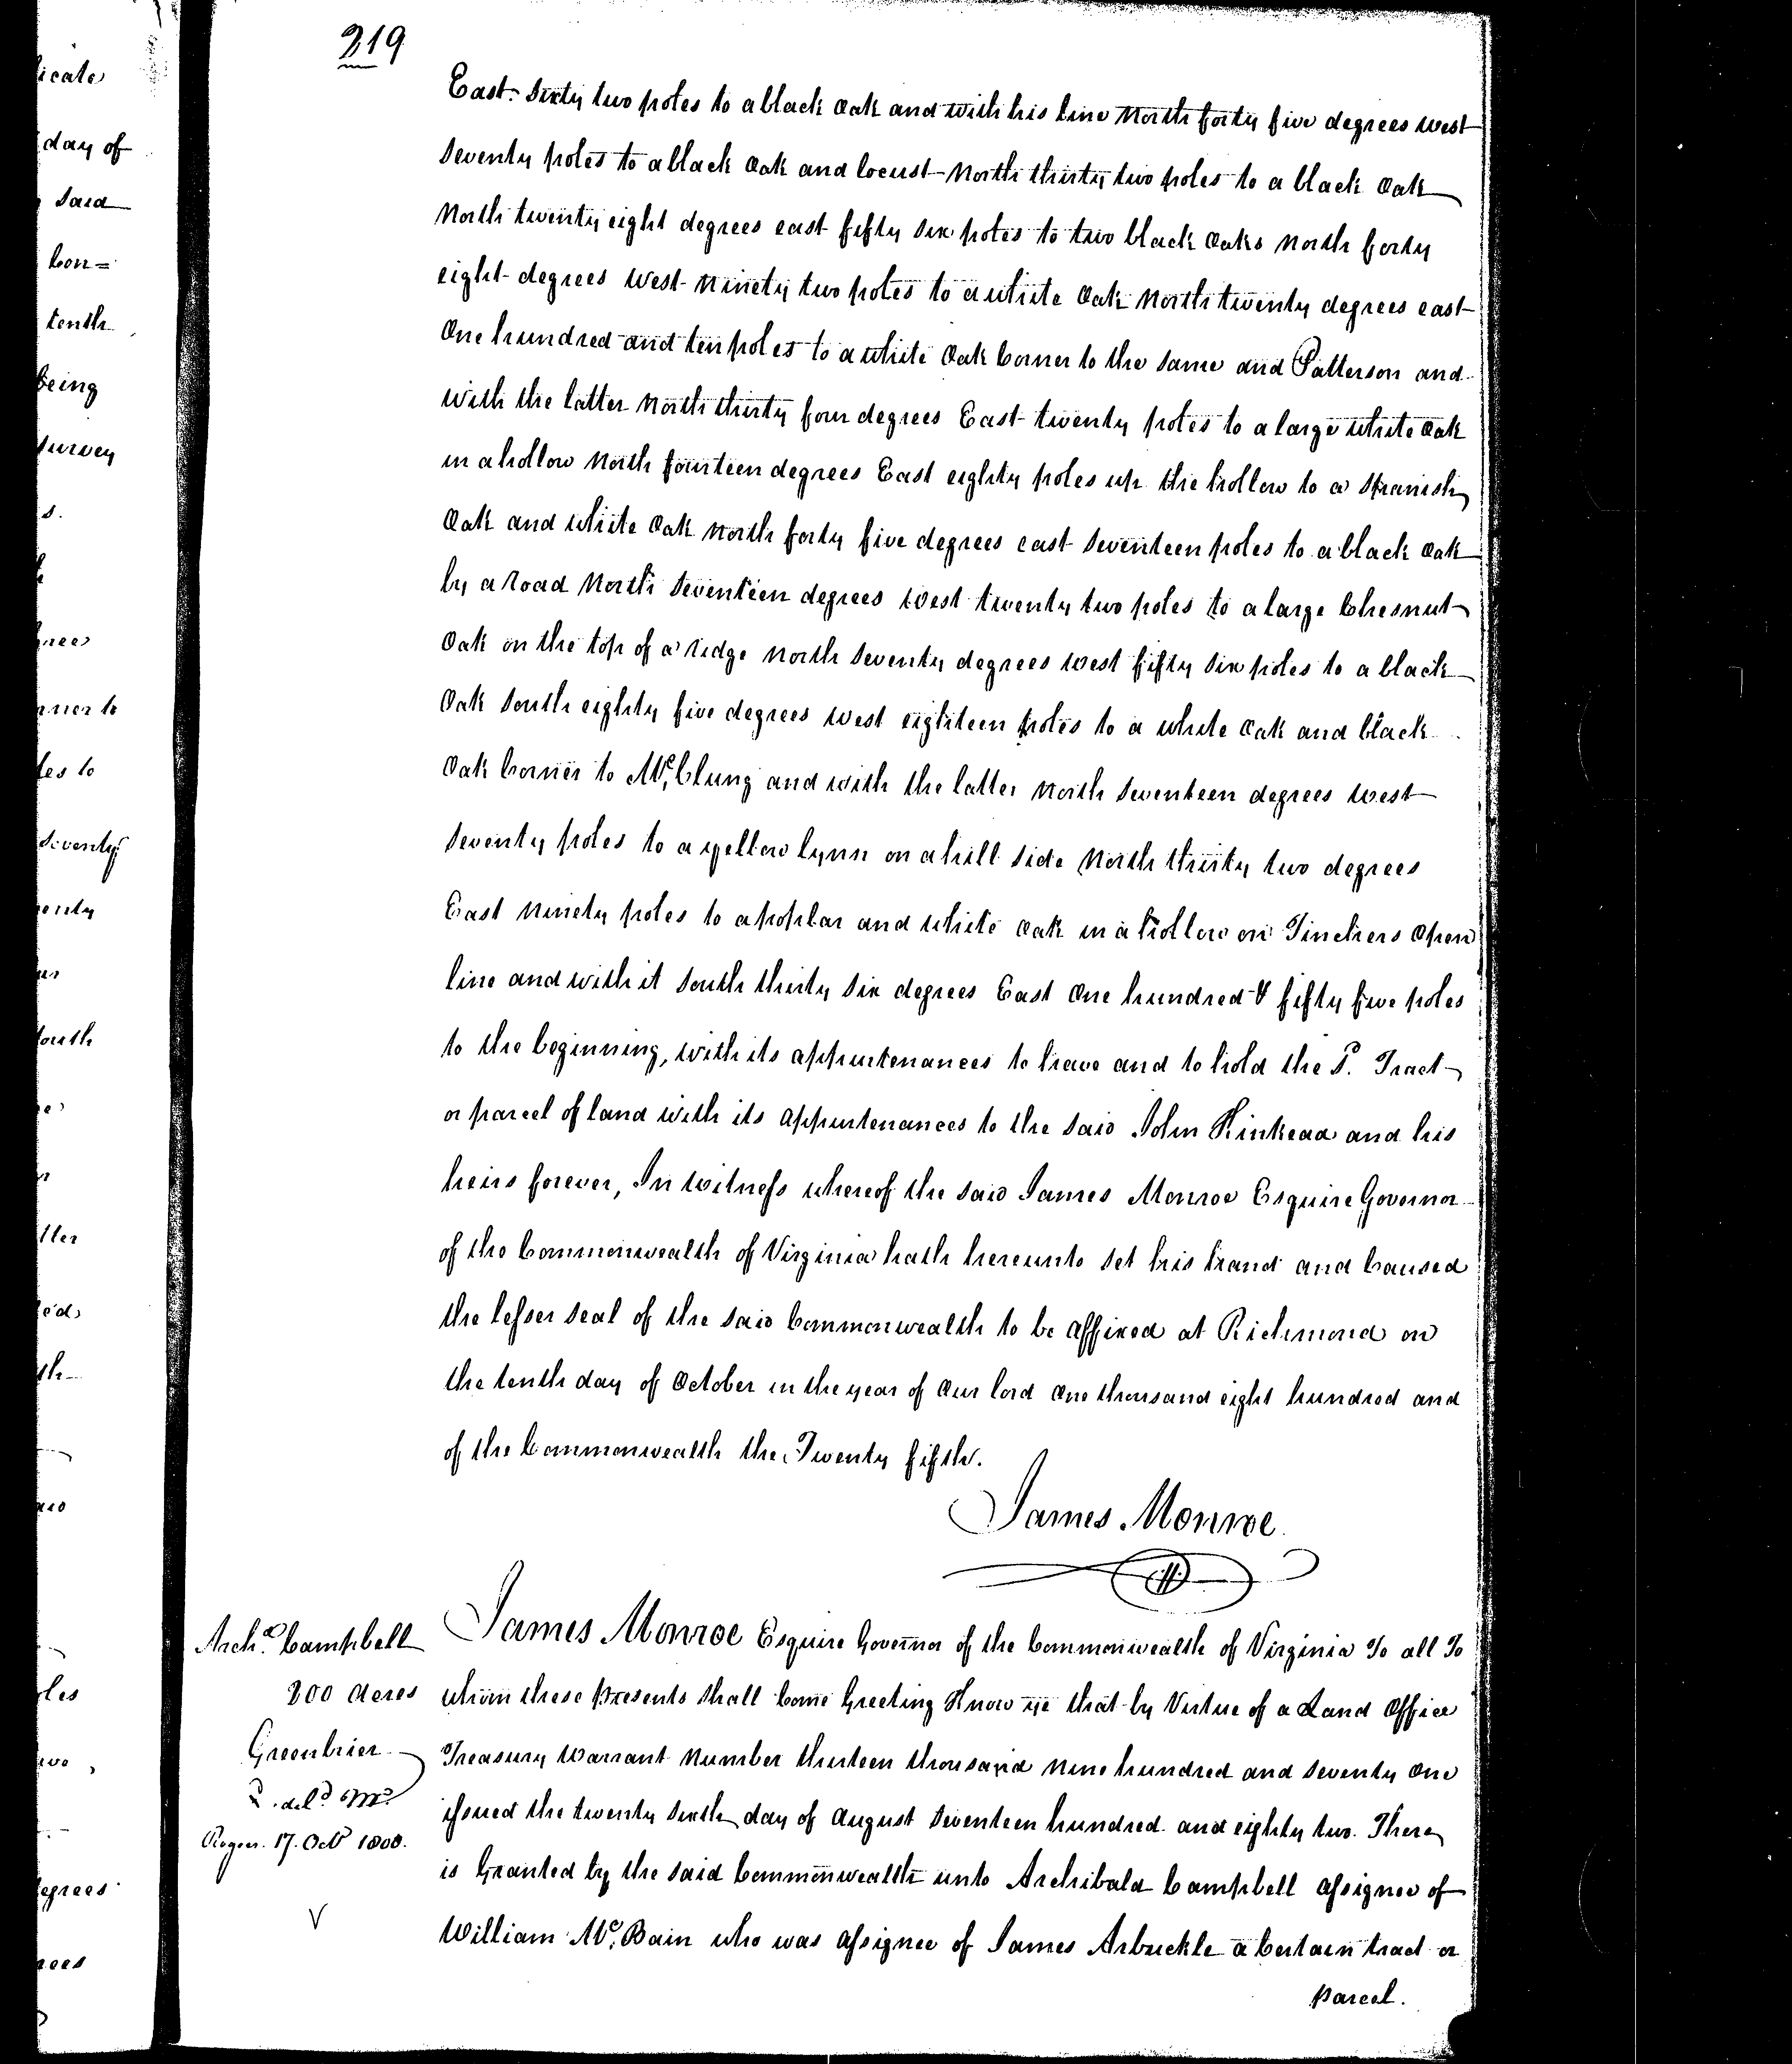 219
East Sixty two poles to a black Oak and with his line North forty five degrees west
Seventy poles to a black Oak and locust North thirty two poles to a black Oak
North twenty eight degrees east fifty six poles to two black Oaks North forty
eight degrees West Ninety two poles to a white Oak North twenty degrees east
One hundred and ten poles to a white Oak Corner to the same and Patterson and
with the latter North thirty four degrees East twenty poles to a large white Oak
in a hollow North fourteen degrees East eighty poles up the hollow to a Spanish
Oak and white Oak North forty five degrees east Seventeen poles to a black Oak
by a Road North Seventeen degrees West twenty two poles to a large Chesnut
Oak on the top of a ridge North Seventy degrees West fifty six poles to a black
Oak South eighty five degrees west eighteen poles to a white Oak and black
Oak Corner to Mc.Clung and with the latter North Seventeen degrees West
Seventy poles to a yellow lynn on a hill side North thirty two degrees
East Ninety poles to a poplar and white Oak in a hollow on Tinchers Open
line and with it South thirty six degrees East One hundred & fifty five poles
to the beginning, with its appurtenances to have and to hold the Sd. Tract
or parcel of land with its appurtenances to the said John Kinkead and his
heirs forever, In Witness whereof the said James Monroe Esquire Governor
of the Commonwealth of Virginia hath hereunto Set his hand and Caused
the lesser Seal of the said Commonwealth to be affixed at Richmond on
the tenth day of October in the year of Our lord One thousand eight hundred and
of the Commonwealth the Twenty fifth.
James Monroe
Archd. Campbell
200 Acres
Greenbrier
17. Oct 1800.
James Monroe Esquire Governor of the Commonwealth of Virginia To all To
whom these presents Shall Come Greeting Know ye that by Virtue of a Land Office
Treasury Warrant Number thirteen thousand Nine hundred and Seventy One
issued the twenty Sixth day of August Seventeen hundred and eighty two. There
is Granted by the said Commonwealth unto Archibald Campbell assignee of
William Mc.Bain who was assignee of James Arbuckle a Certain tract or
parcel.